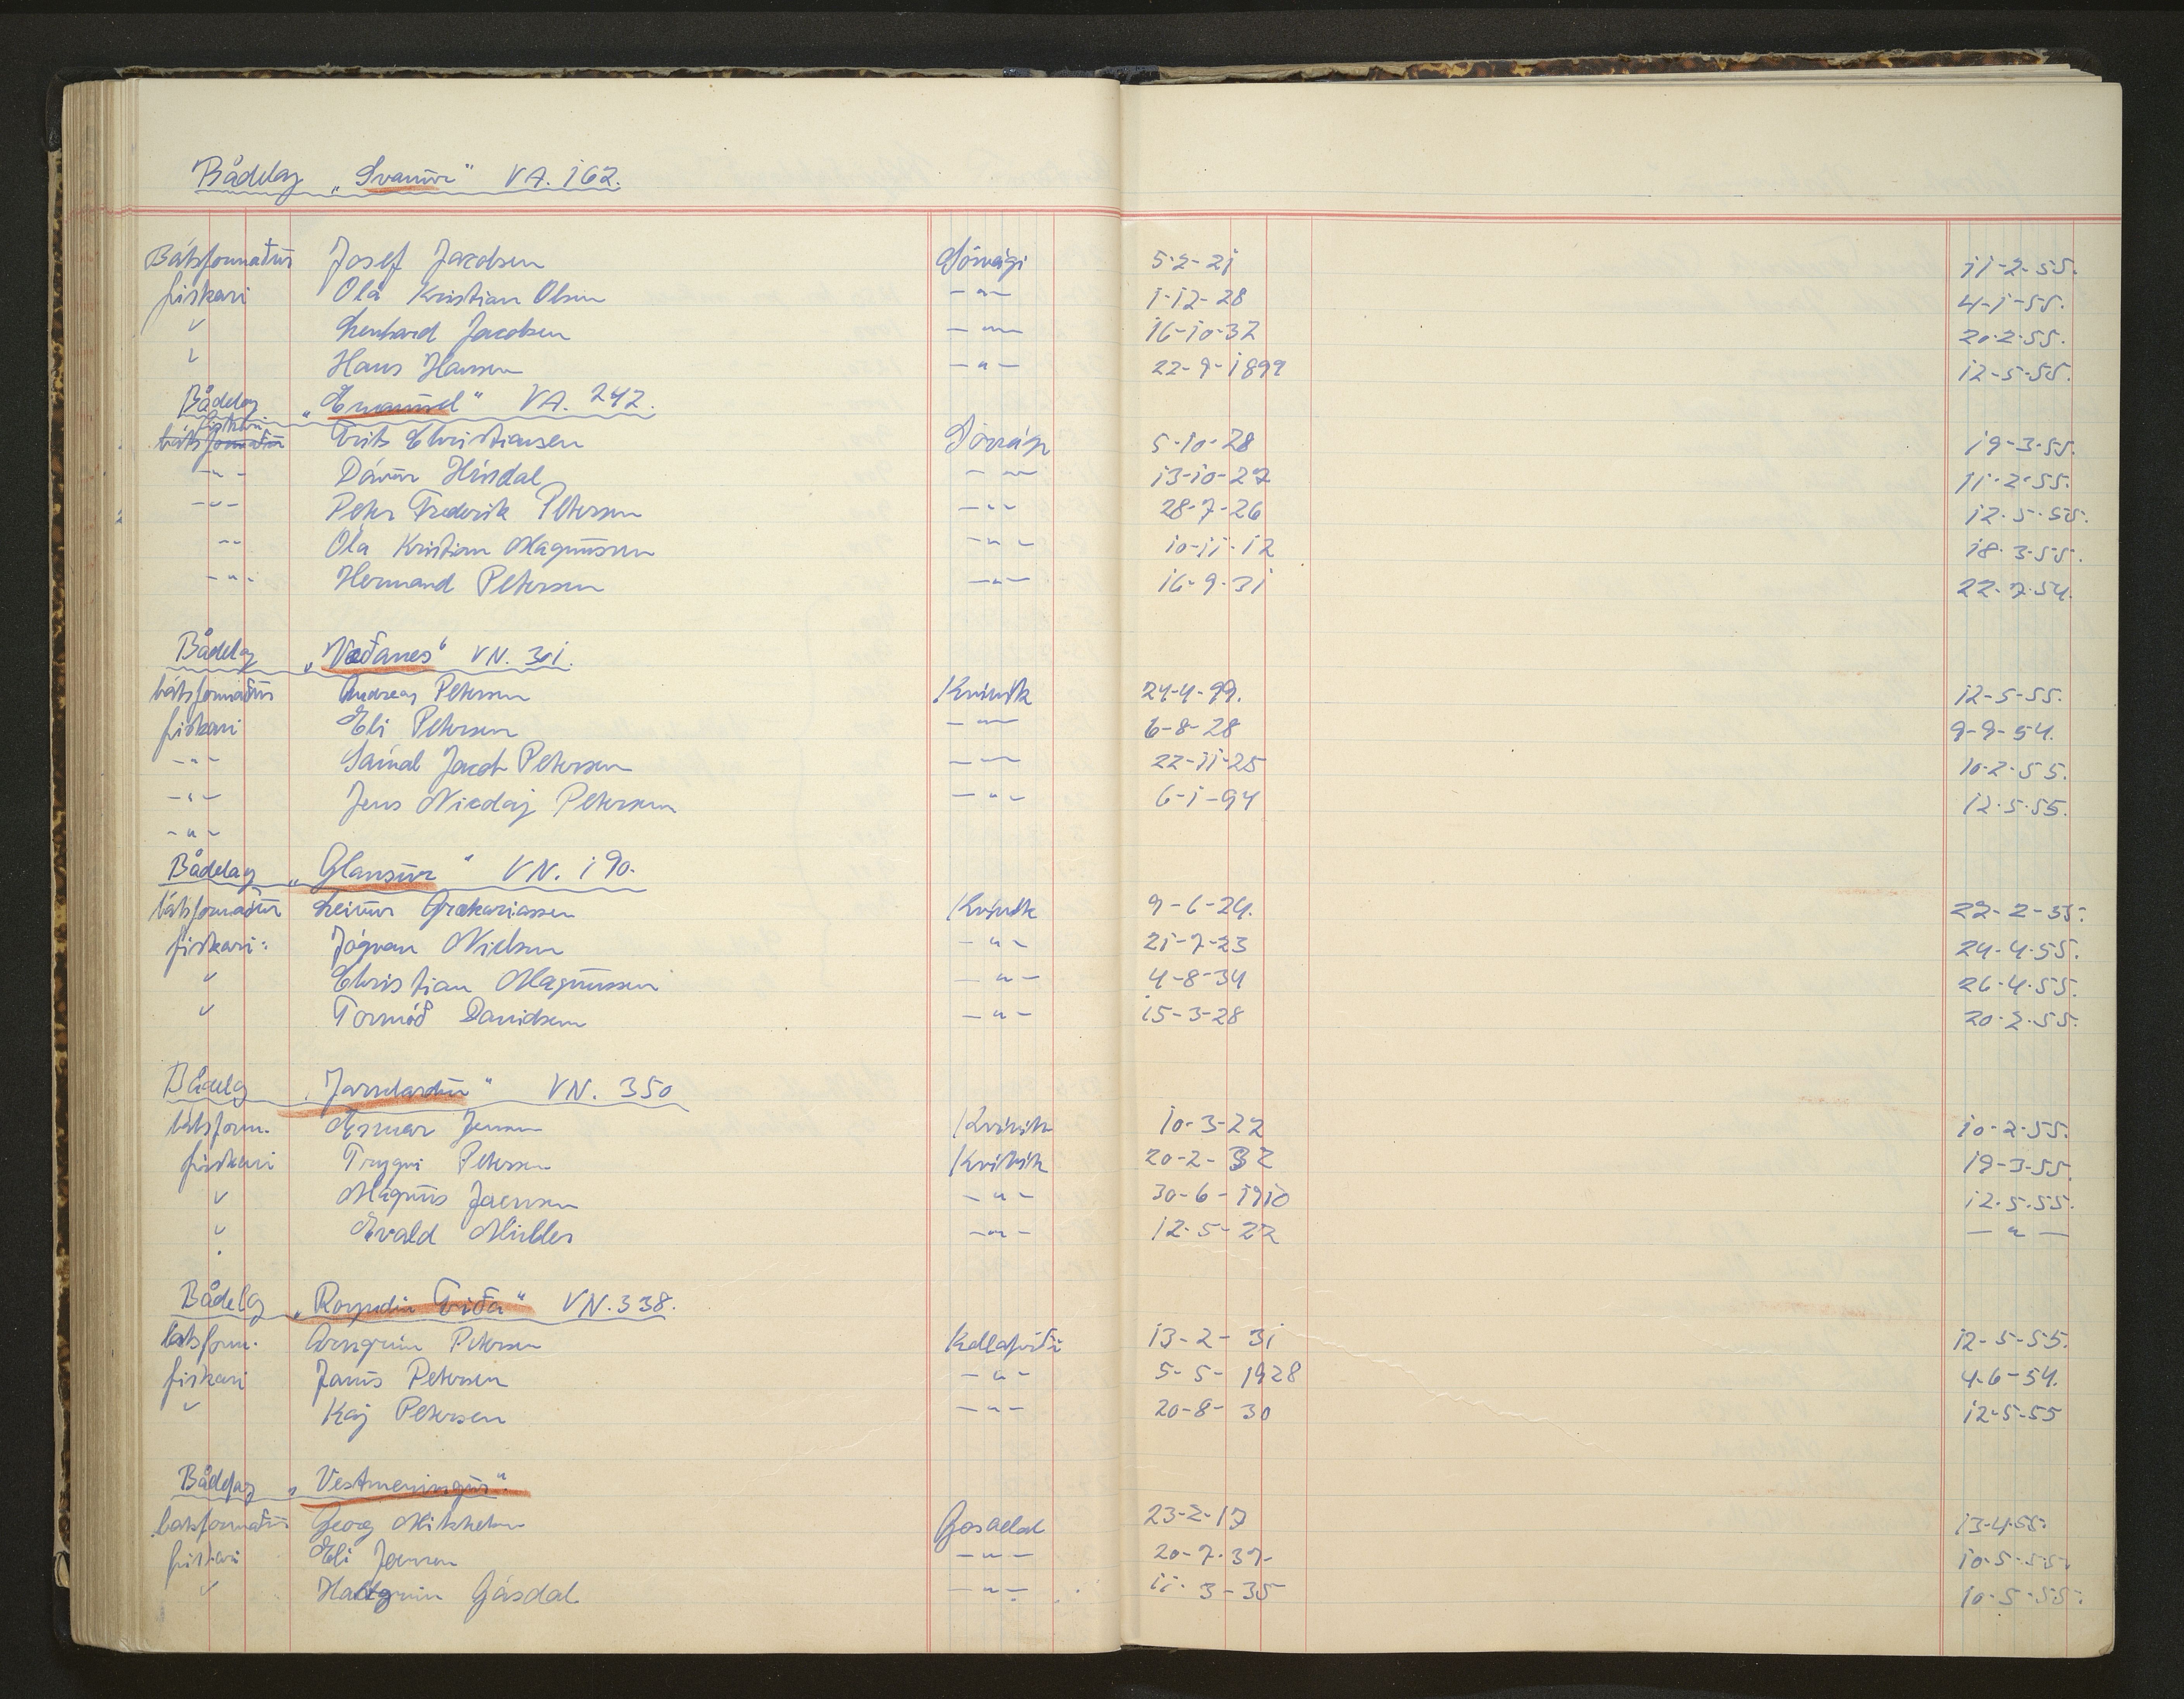 Bådelag "Svanur" VA. 162.
Bátsformaður Josef Jacobsen Sörvági 5-2-21 11-2-55.
fiskari Óla Kristian Olsen -"- 1-12-28 4-1-55.
" Lenhard Jacobsen -"- 16-10-32 20-2-55.
" Hans Hansen -"- 22-9-1899 12-5-55.
Bådelag "Emanuel" VA. 242.
fiskari
bátsformaður Frits Christiansen Sörvági 5-10-28 19-3-55.
-"- Dávur Hirsdal -"- 13-10-27 11-2-55.
-"- Peter Frederik Petersen -"- 28-7-26 12-5-55.
-"- Óla Kristian Magnussen -"- 10-11-12 18-3-55.
-"- Hermand Petersen -"- 16-9-31 22-7-54.
Bådelag "Vaðanes" VN. 301.
bátsformaður Andreas Petersen Kvívík 24-4-99. 12-5-55.
fiskari Eli Petersen -"- 6-8-28 9-9-54.
-"- Sámal Jacob Petersen -"- 22-11-25 10-2-55.
-"- Jens Nicolaj Petersen -"- 6-1-94 12-5-55.
-"-
Bådelag "Glansur" VN. 190.
bátsformaður Leivur Grækariassen Kvívík 9-6-24. 22-2-55.
fiskari: Jógvan Nielsen -"- 21-7-23 24-4-55.
" Christian Magnussen -"- 4-8-34 26-4-55.
" Tormóð Davidsen -"- 15-3-28 20-2-55.
Bådelag VN. 350
bátsform. Jensen Kvívík 10-3-22 10-2-55.
fiskari Tryggvi Petersen Kvívík 20-2-32 19-3-55.
" Magnus Joensen -"- 30-6-1910 12-5-55.
" Evald Müller -"- 12-5-22 -"-
Bådelag "Royndin Fríða" VN. 338.
bátsform. Arngrim Petersen Kollafirði 13-2-31 12-5-55.
fiskari Janus Petersen -"- 5-5-1928 4-6-54.
" Kaj Petersen -"- 20-8-30 12-5-55
Bådelag "Vestmenningur".
bátsformaður Georg Mikkelsen Gásadal 23-2-13 13-4-55.
fiskari Eli Joensen -"- 20-7-37- 10-5-55.
" Hallgrim Gásdal -"- 11-3-35 10-5-55.